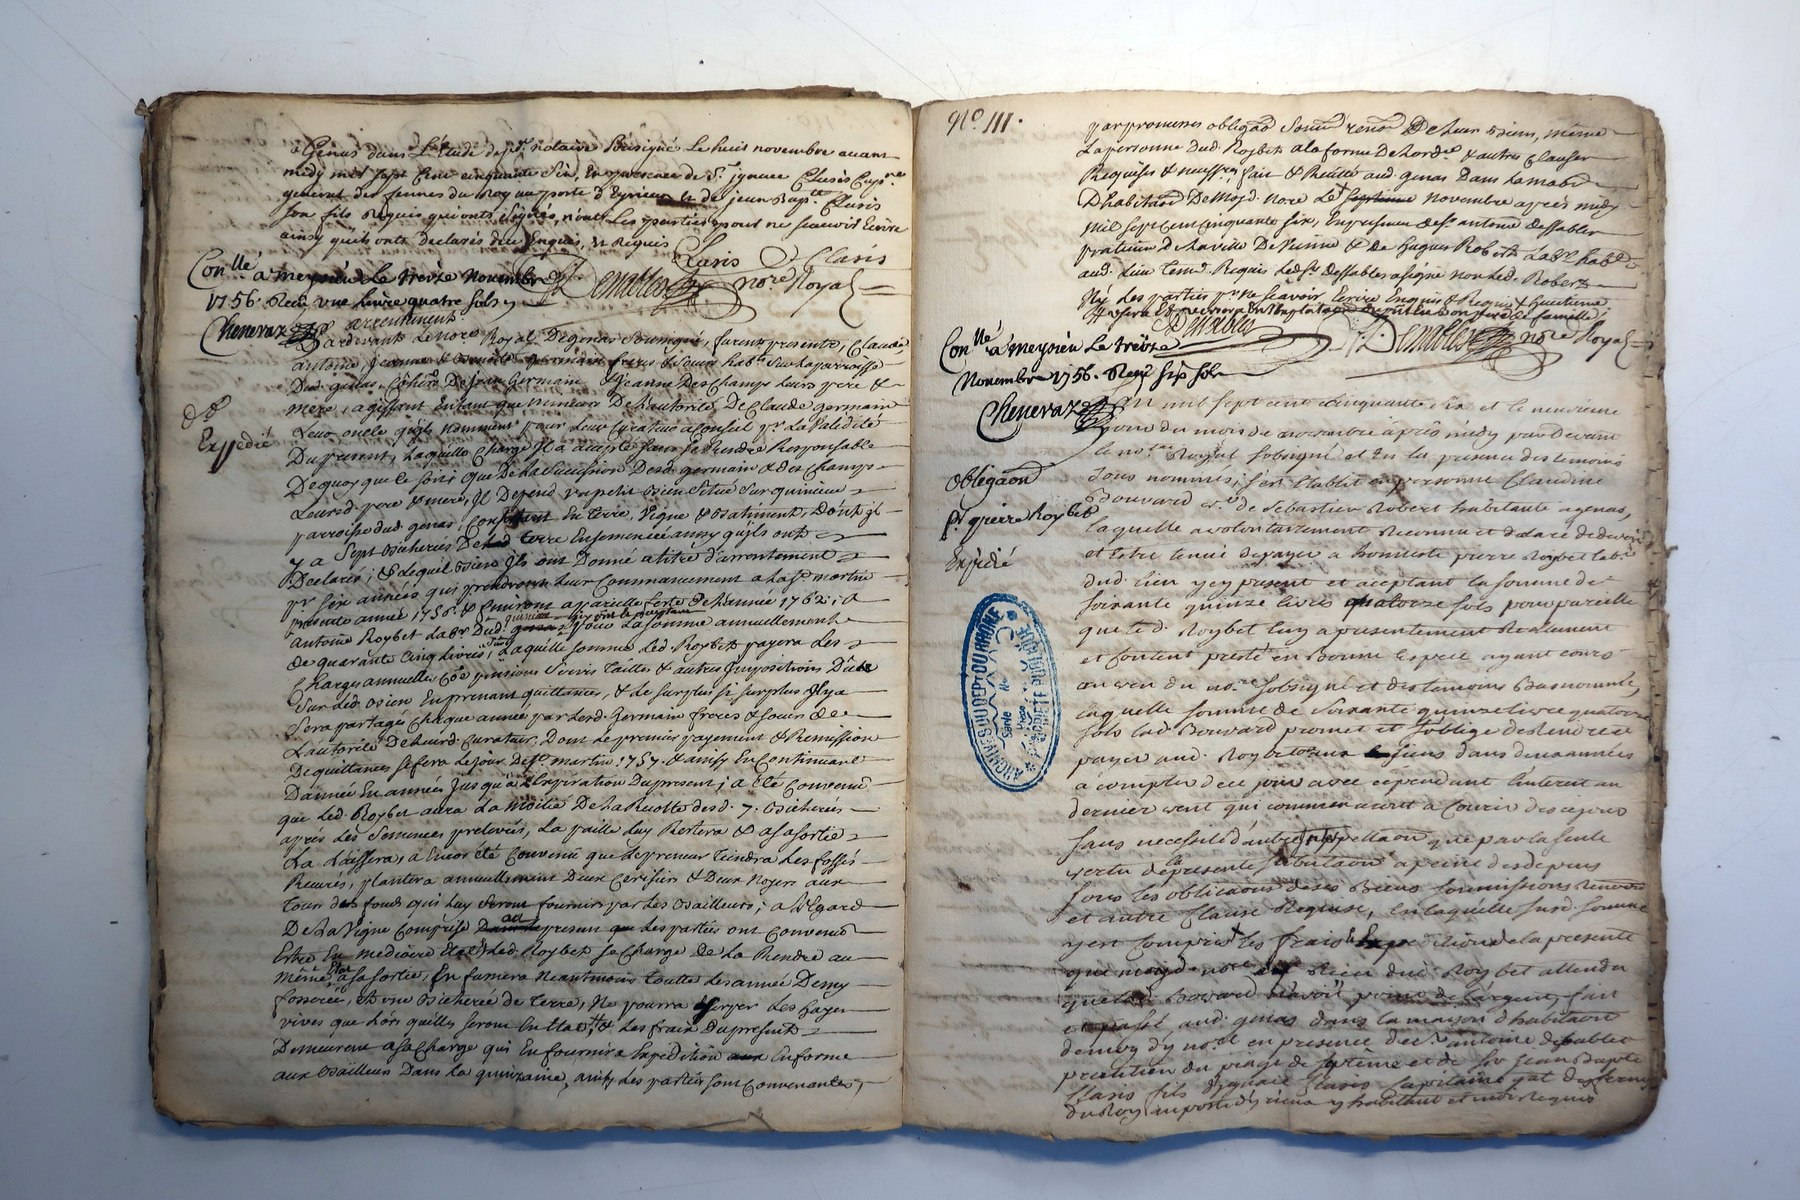 a Genas dans L'Etude dejd. notaire Soussigné Le huit novembre avant
midy mil sept Cent cinquante Six, En presence de Sr. ignace Claris Capne
general des fermes du Roy au poste d'Eyrieu et de jean Bapt. Claris
son fils Requis qui ont signés, n'ont Les parties pour ne scavoir Ecrire
ainsy qu'ils ont declarés de ce Enquis, et Requis
Claris Claris
Demables nore. Royal
Conllé a meysieu Le treize Novembre
1756. Recu une livre quatre sols
Chenevaz
arrentement
Pardevant Le nore Royal De genas Soussigné, furent presents, Claude,
antoine jeanne & germain freres & soeur habts Sur La parroisse
Dud. genas. Cohers De jean Germain & jeanne Des Champs Leurs pere &
mere, agissant En tant que mineurs De L'autorité De Claude germain
Leur oncle qu'ils Nomment pour Leur Curateur a Conseil pr La Validité
Du present, Laquelle Charge Il a accepté sans se Rendre Responsable
De quoy que ce soit; que De La succession Desd. germain & des Champs
Leursd. pere & mere, Il Depend un petit bien situé sur
parroisse dud. genas, Consistant En terre, Vigne & Batiment, Dont il
y a Sept bicherées De terre Ensemencée ainsy qu'ils ont
Declarés; & Lequel bien Ils ont Donné a titre d'arrentement
pr six années qui prendront Leur Commancement a La St. martin
presente année 1756. & finiront a pareille feste De L'année 1762; A
antoine Roybet Labr Dud. genas pour La somme annuellement
de quarante Cinq livres, Laquelle somme Led. Roybet payera Les
Charges annuelles Coe pensions Servis tailles & autres Impositions Dües
Sur Led. bien En prenant quittances, & Le surplus si surplus Il y a
Sera partagé Chaque année par Lesd. Germain freres & soeur De
L'autorité De Leurd. Curateur, Dont Le premier payement & Remission
De quittances se fera Le jour De St. martin 1757. & ainsy En Continuant
D'année En années jusqu'a L'Expiration Du present; a Eté Convenu
que Led. Roybet aura La moitié De La Recolte desd. 7. bicherées
après Les Semences prelevées, La paille Luy Restera & a sa sortie
La Laissera, a Encor été Convenu que Le preneur tiendra Les fossés
Recurés, plantera annuellement Deux Cerisiers & Deux Noyers aux
tours des fonds qui Luy seront fournis par Les Bailleurs; a L'Egard
De La Vigne Comprise au present que Les parties ont Convenu
Estre En mediocre Etat, Led. Roybet se Charge de La Rendre au
même Etat a sa sortie, En fumera neantmoins toutes Les années Demy
fosserée, & une bicherée de terre, Ne pourra Serper Les hayes
vives que Lors qu'elles seront En Etat, & Les frais Du present
Demeurent a sa Charge qui En fournira Expedition En forme
aux Bailleurs Dans La quinzaine, ainsy Les parties sont Convenantes,
Expedié
No. 111.
par promesses obligaon Soumon renon De Leurs biens, même
La personne Dud. Roybet a la forme De Lordce & autres Clauses
Requises & necessres, fait & Recitté aud. genas Dans La maison
D'habitaon De Moyd. Nore Le septieme Novembre après midy
mil sept cent cinquante six, En presence de Sr. antoine dessables
praticien de La ville De Vienne & de hugues Robert Labr. habt
aud. Lieu temd. Requis Led. sr. dessables a signé non Led. Robert
Ny Les parties pr ne scavoir Ecrire Enquis & Requis
Desables
Demables nore Royal
Conllé a meysieu Le treize
Novembre 1756. Recu six sols
Chenevaz
Obligaon
pr. pierre Roybet
Expedié
L'an mil sept cent cinquante six et le neuvieme
jour du mois de novembre après midy par Devant
le notre Royal sobsigné et En la presence des temoins
sous nommés, s'est Etablie en personne Claudine
Bouvard ve de Sebastien Robert habitante a genas,
laquelle a volontairement Reconnu et declaré de devoir
et Estre tenue de payer a honneste pierre Roybet labr
dud. lieu y cy present et aceptant la somme de
soixante quinze livres quatorze sols pour pareille
que led. Roybet luy a presentement Realement
et contant presté en bonne Espece ayant cours
au veu du nore sobsigné et des temoins bas nommés,
laquelle somme de soixante quinze livre quatorze
sols lad. Bouvard promet et s'oblige de Rendre et
payer aud. Roybet ou aux siens dans deux années
a compter de ce jour avec cependant l'interet au
dernier vent qui commenceront a Courir des ce jour
sans necessité d'autre interpellaon que par la seule
vertu de la presente stipulaon a peine de depens
sous les obligaons de ses Biens soumissions Renonons
et autre Clause Requise, en laquelle susd. somme
y est compris les frais & Expedition de la presente
que moyd. nore ay Receu dud. Roybet attendu
que lad. Bouvard n'avoit point de l'argent, fait
et passé aud. genas dans la maison d'habitaon
de moy dy nore en presence de Sr antoine desables
praticien du et de Sr jean Bapte
Claris fils d'ignace Claris Capitaine gal des fermes
du Roy au poste d'yrieu y habitant et Requis
ARCHIVES DU DEPT DU RHÔNE
PROPRIÉTÉ PUBLIQUE